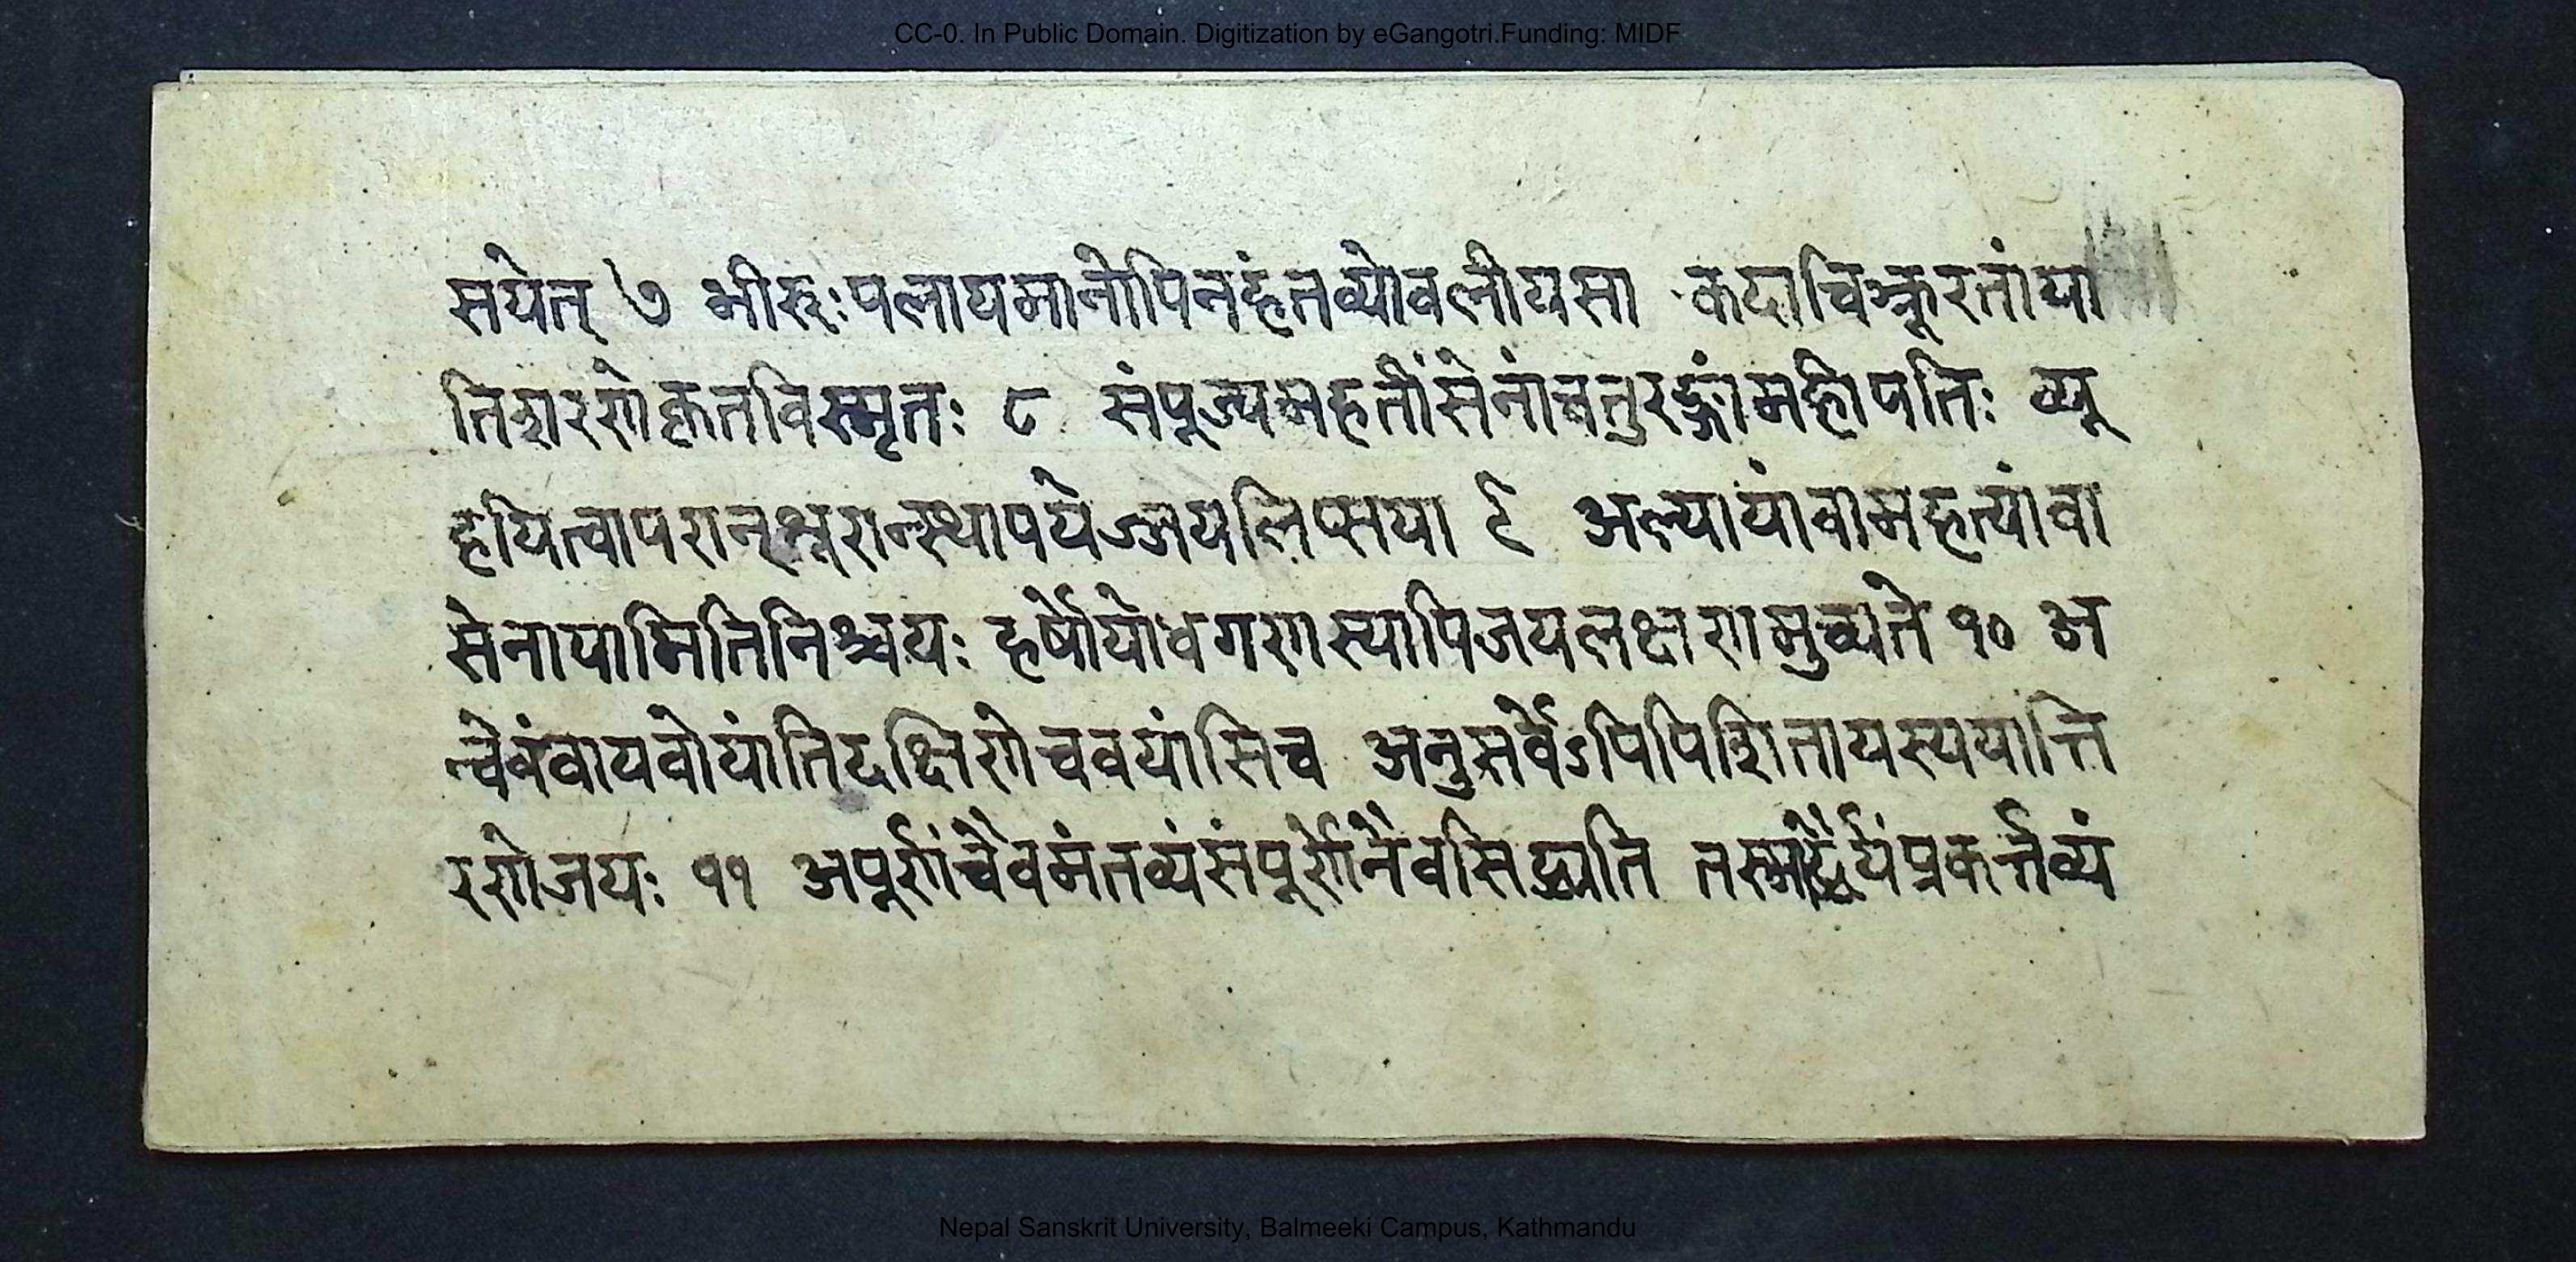 CC-0. In Public Domain. Digitization by eGangotri.Funding: MIDF
सयेत् ७ भीरुःपलायमानोपिनहंतव्योवलीयसा कदाचिच्छूरतांया
तिशरणेकृतविस्मृतः ८ संपूज्यमहतींसेनांचतुरङ्गांमहीपतिः व्यू
हयित्वापरान्शूरान्स्थापयेज्जयलिप्सया ९ अल्पायांवामहत्यांवा
सेनायामितिनिश्चयः हर्षोयोधगणस्यापिजयलक्षणमुच्यते १० अ
न्वेवंवायवोयांतिदक्षिणेचवयांसिच अनुसर्वेऽपिपिशितायस्ययान्ति
रणेजयः ११ अपूर्णांचैवमंतव्यंसंपूर्णेनैवसिद्ध्यति तस्माद्धैर्यंप्रकर्त्तव्यं
Nepal Sanskrit University, Balmeeki Campus, Kathmandu